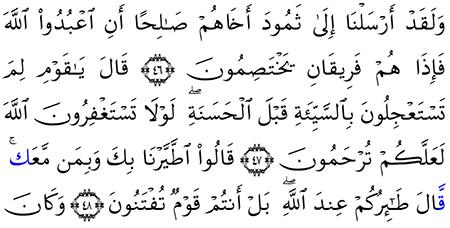 وَلَقَدْ أَرْسَلْنَا إِلَىٰ ثَمُودَ أَخَاهُمْ صَـٰلِحًا أَنِ ٱعْبُدُوا۟ ٱللَّهَ
فَإِذَا هُمْ فَرِيقَانِ يَخْتَصِمُونَ ﴿٤٦﴾ قَالَ يَـٰقَوْمِ لِمَ
تَسْتَعْجِلُونَ بِٱلسَّيِّئَةِ قَبْلَ ٱلْحَسَنَةِ ۖ لَوْلَا تَسْتَغْفِرُونَ ٱللَّهَ
لَعَلَّكُمْ تُرْحَمُونَ ﴿٤٧﴾ قَالُوا۟ ٱطَّيَّرْنَا بِكَ وَبِمَن مَّعَكَ ۚ
قَّالَ طَـٰٓئِرُكُمْ عِندَ ٱللَّهِ ۖ بَلْ أَنتُمْ قَوْمٌ تُفْتَنُونَ ﴿٤٨﴾ وَكَانَ